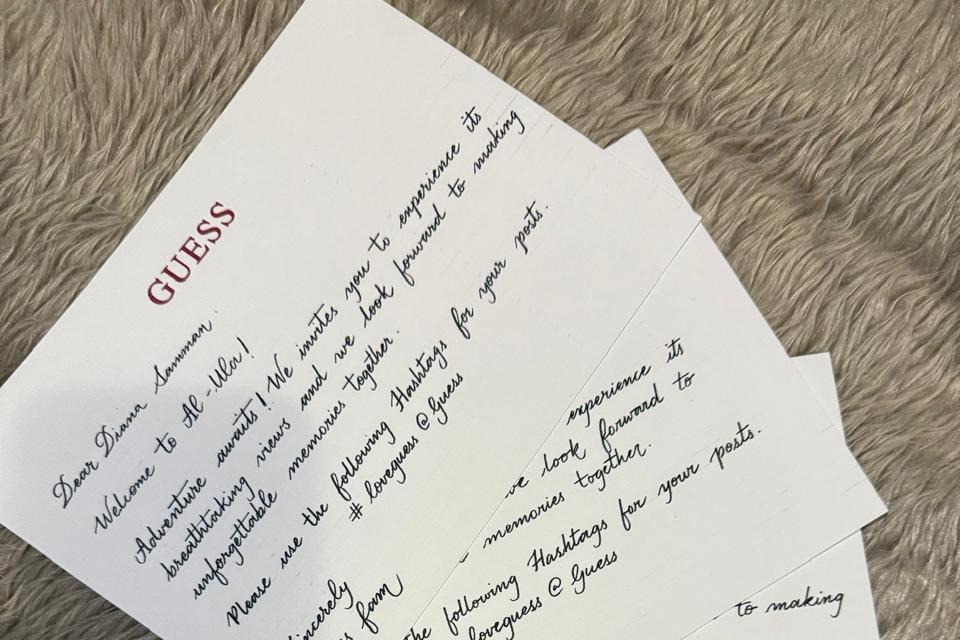 GUESS
Dear Diana Samman.
Welcome to Al-Ula!
Adventure awaits! We invites you to experience its
breathtaking views and we look forward to making
unforgettable memories together.
Please use the following Hashtags for your posts.
# loveguess @ Guess
incerely
s fam
experience its
ve look forward to
memories together.
the following Hashtags for your posts.
loveguess @ Guess
to making